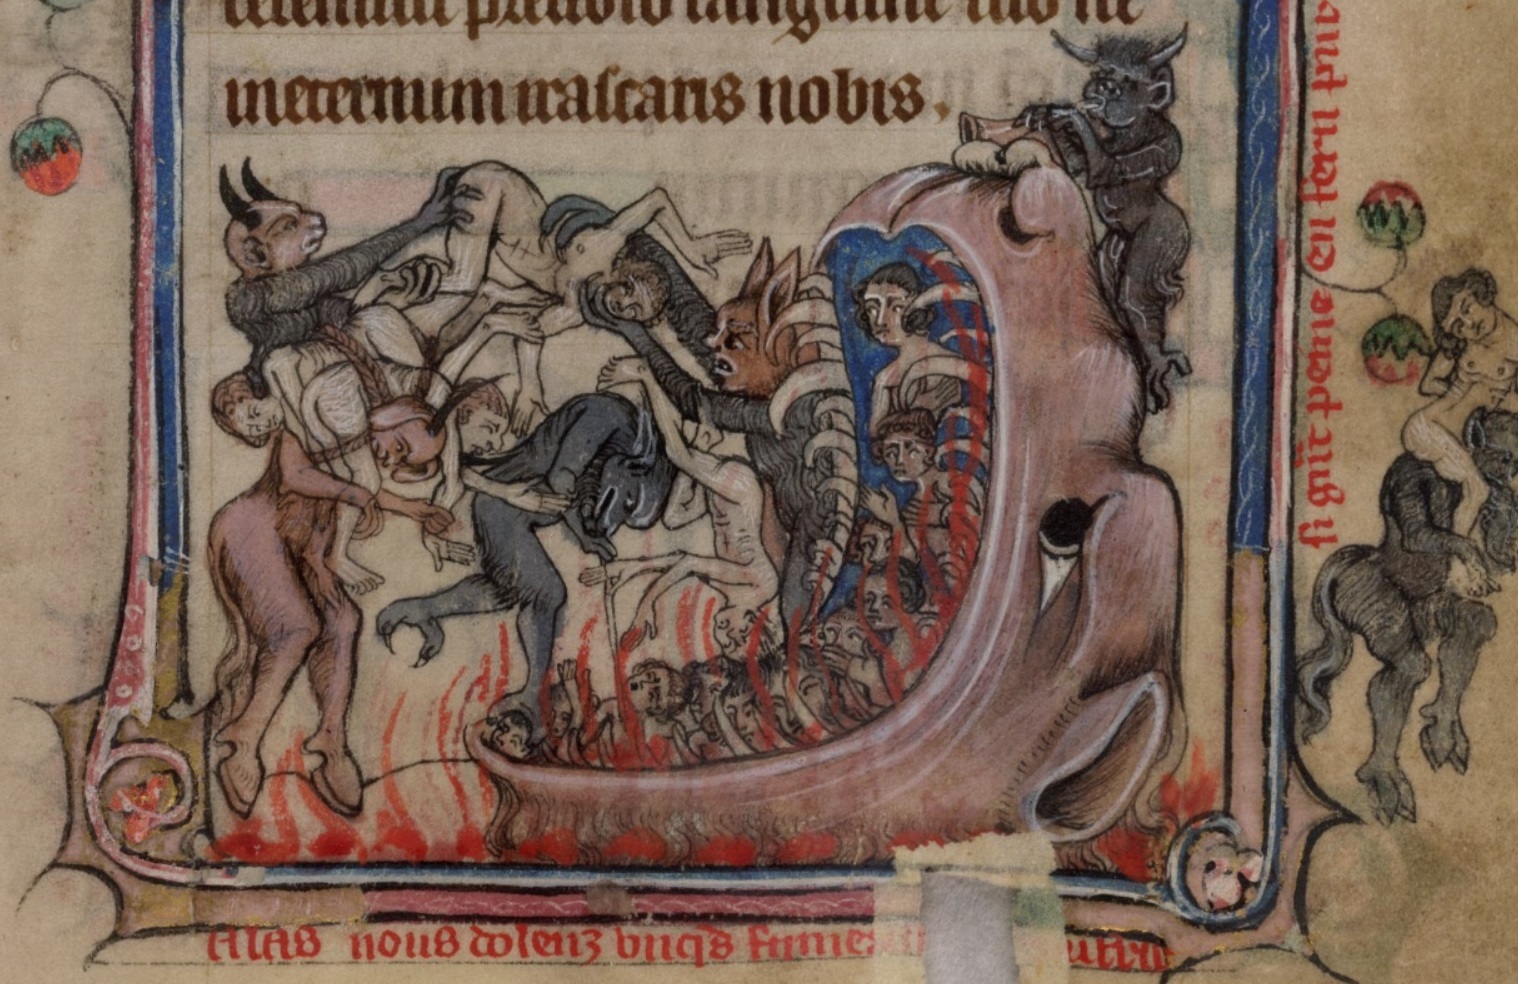 precioso sanguine tuo ne
ineternum irascaris nobis.
si gñt peine en fern pur
Alas nous dolenz unqs fumes